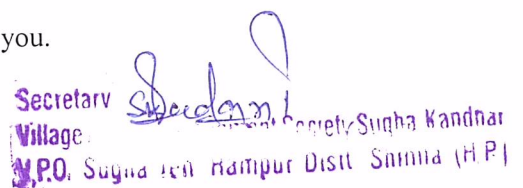 you.
Secretary
Village Society Sugha Kandhar
V.P.O. Sugha Teh Rampur Distt Shimla (H.P)